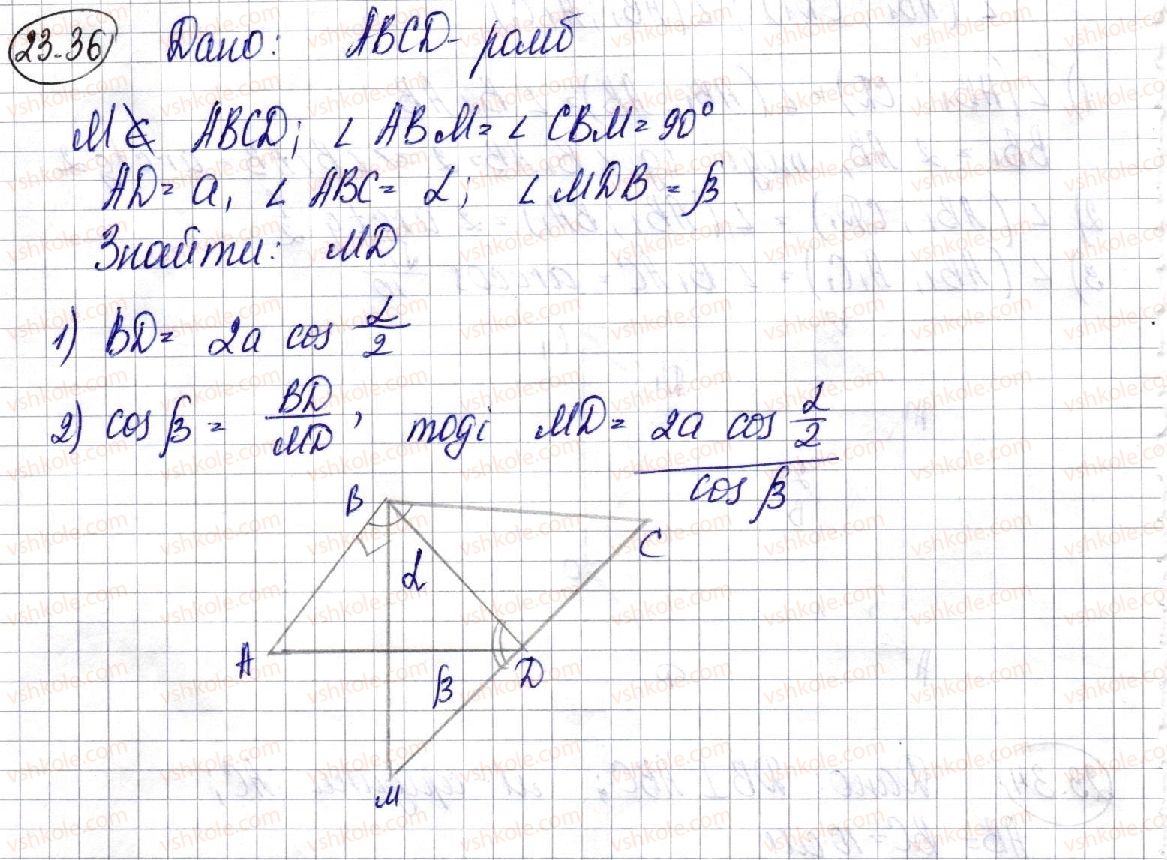 23.36 Дано: ABCD - ромб
M ∉ ABCD; ∠ ABM = ∠ CBM = 90°
AD = a, ∠ ABC = α; ∠ MDB = β
Знайти: MD
1) BD = 2a cos α/2
2) cos β = BD/MD, тоді MD = (2a cos α/2)/cos β
B
C
α
A
D
β
M